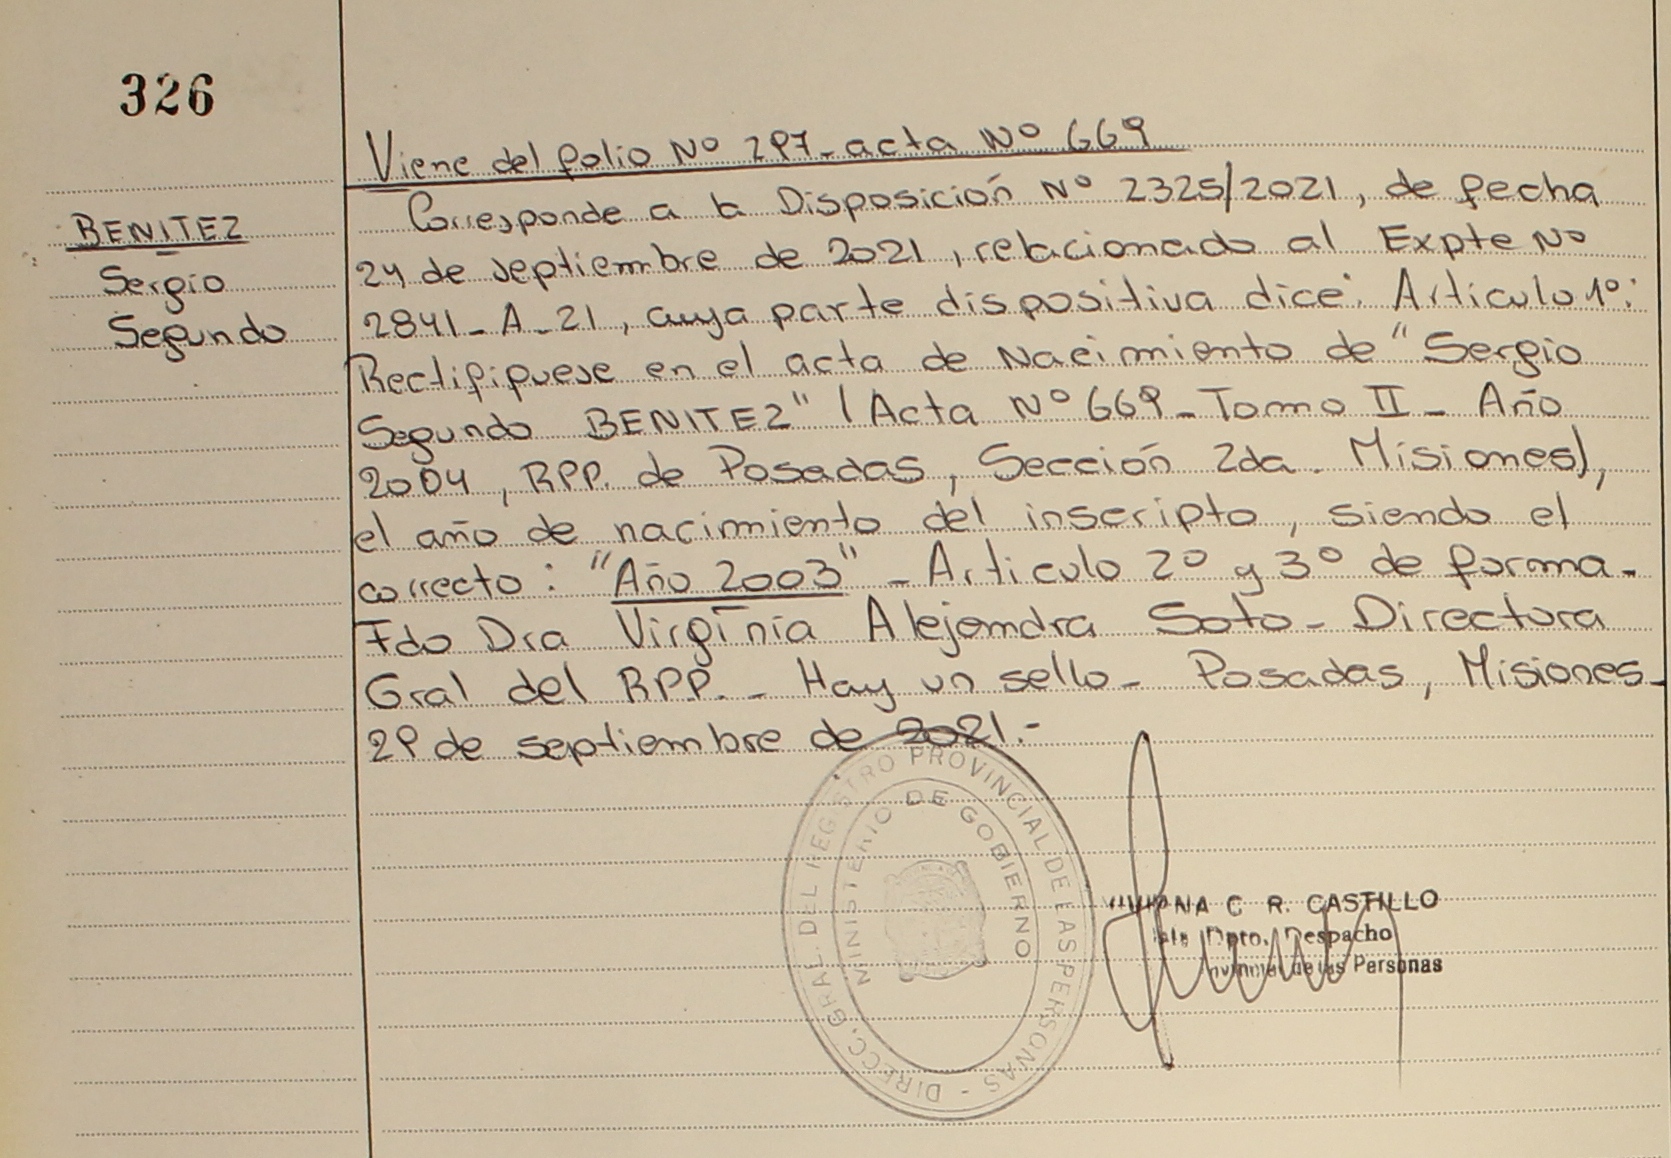 326
Viene del folio Nº 297-acta Nº 669
BENITEZ
Sergio
Segundo
Corresponde a la Disposición Nº 2325/2021, de fecha
24 de septiembre de 2021, relacionado al Expte Nº
2841-A-21, cuya parte dispositiva dice: Artículo 1º:
Rectifiquese en el acta de Nacimiento de "Sergio
Segundo BENITEZ" (Acta Nº 669-Tomo II- Año
2004, RPP. de Posadas, Sección 2da. Misiones),
el año de nacimiento del inscripto, siendo el
correcto: "Año 2003" - Articulo 2º y 3º de forma.
Fdo Dra Virginia Alejandra Soto- Directora
Gral del RPP.- Hay un sello- Posadas, Misiones-
29 de septiembre de 2021.-
DIRECC. GRAL. DEL REGISTRO PROVINCIAL DE LAS PERSONAS -
MINISTERIO DE GOBIERNO
C R. CASTILLO
Dpto. Despacho
de las Personas